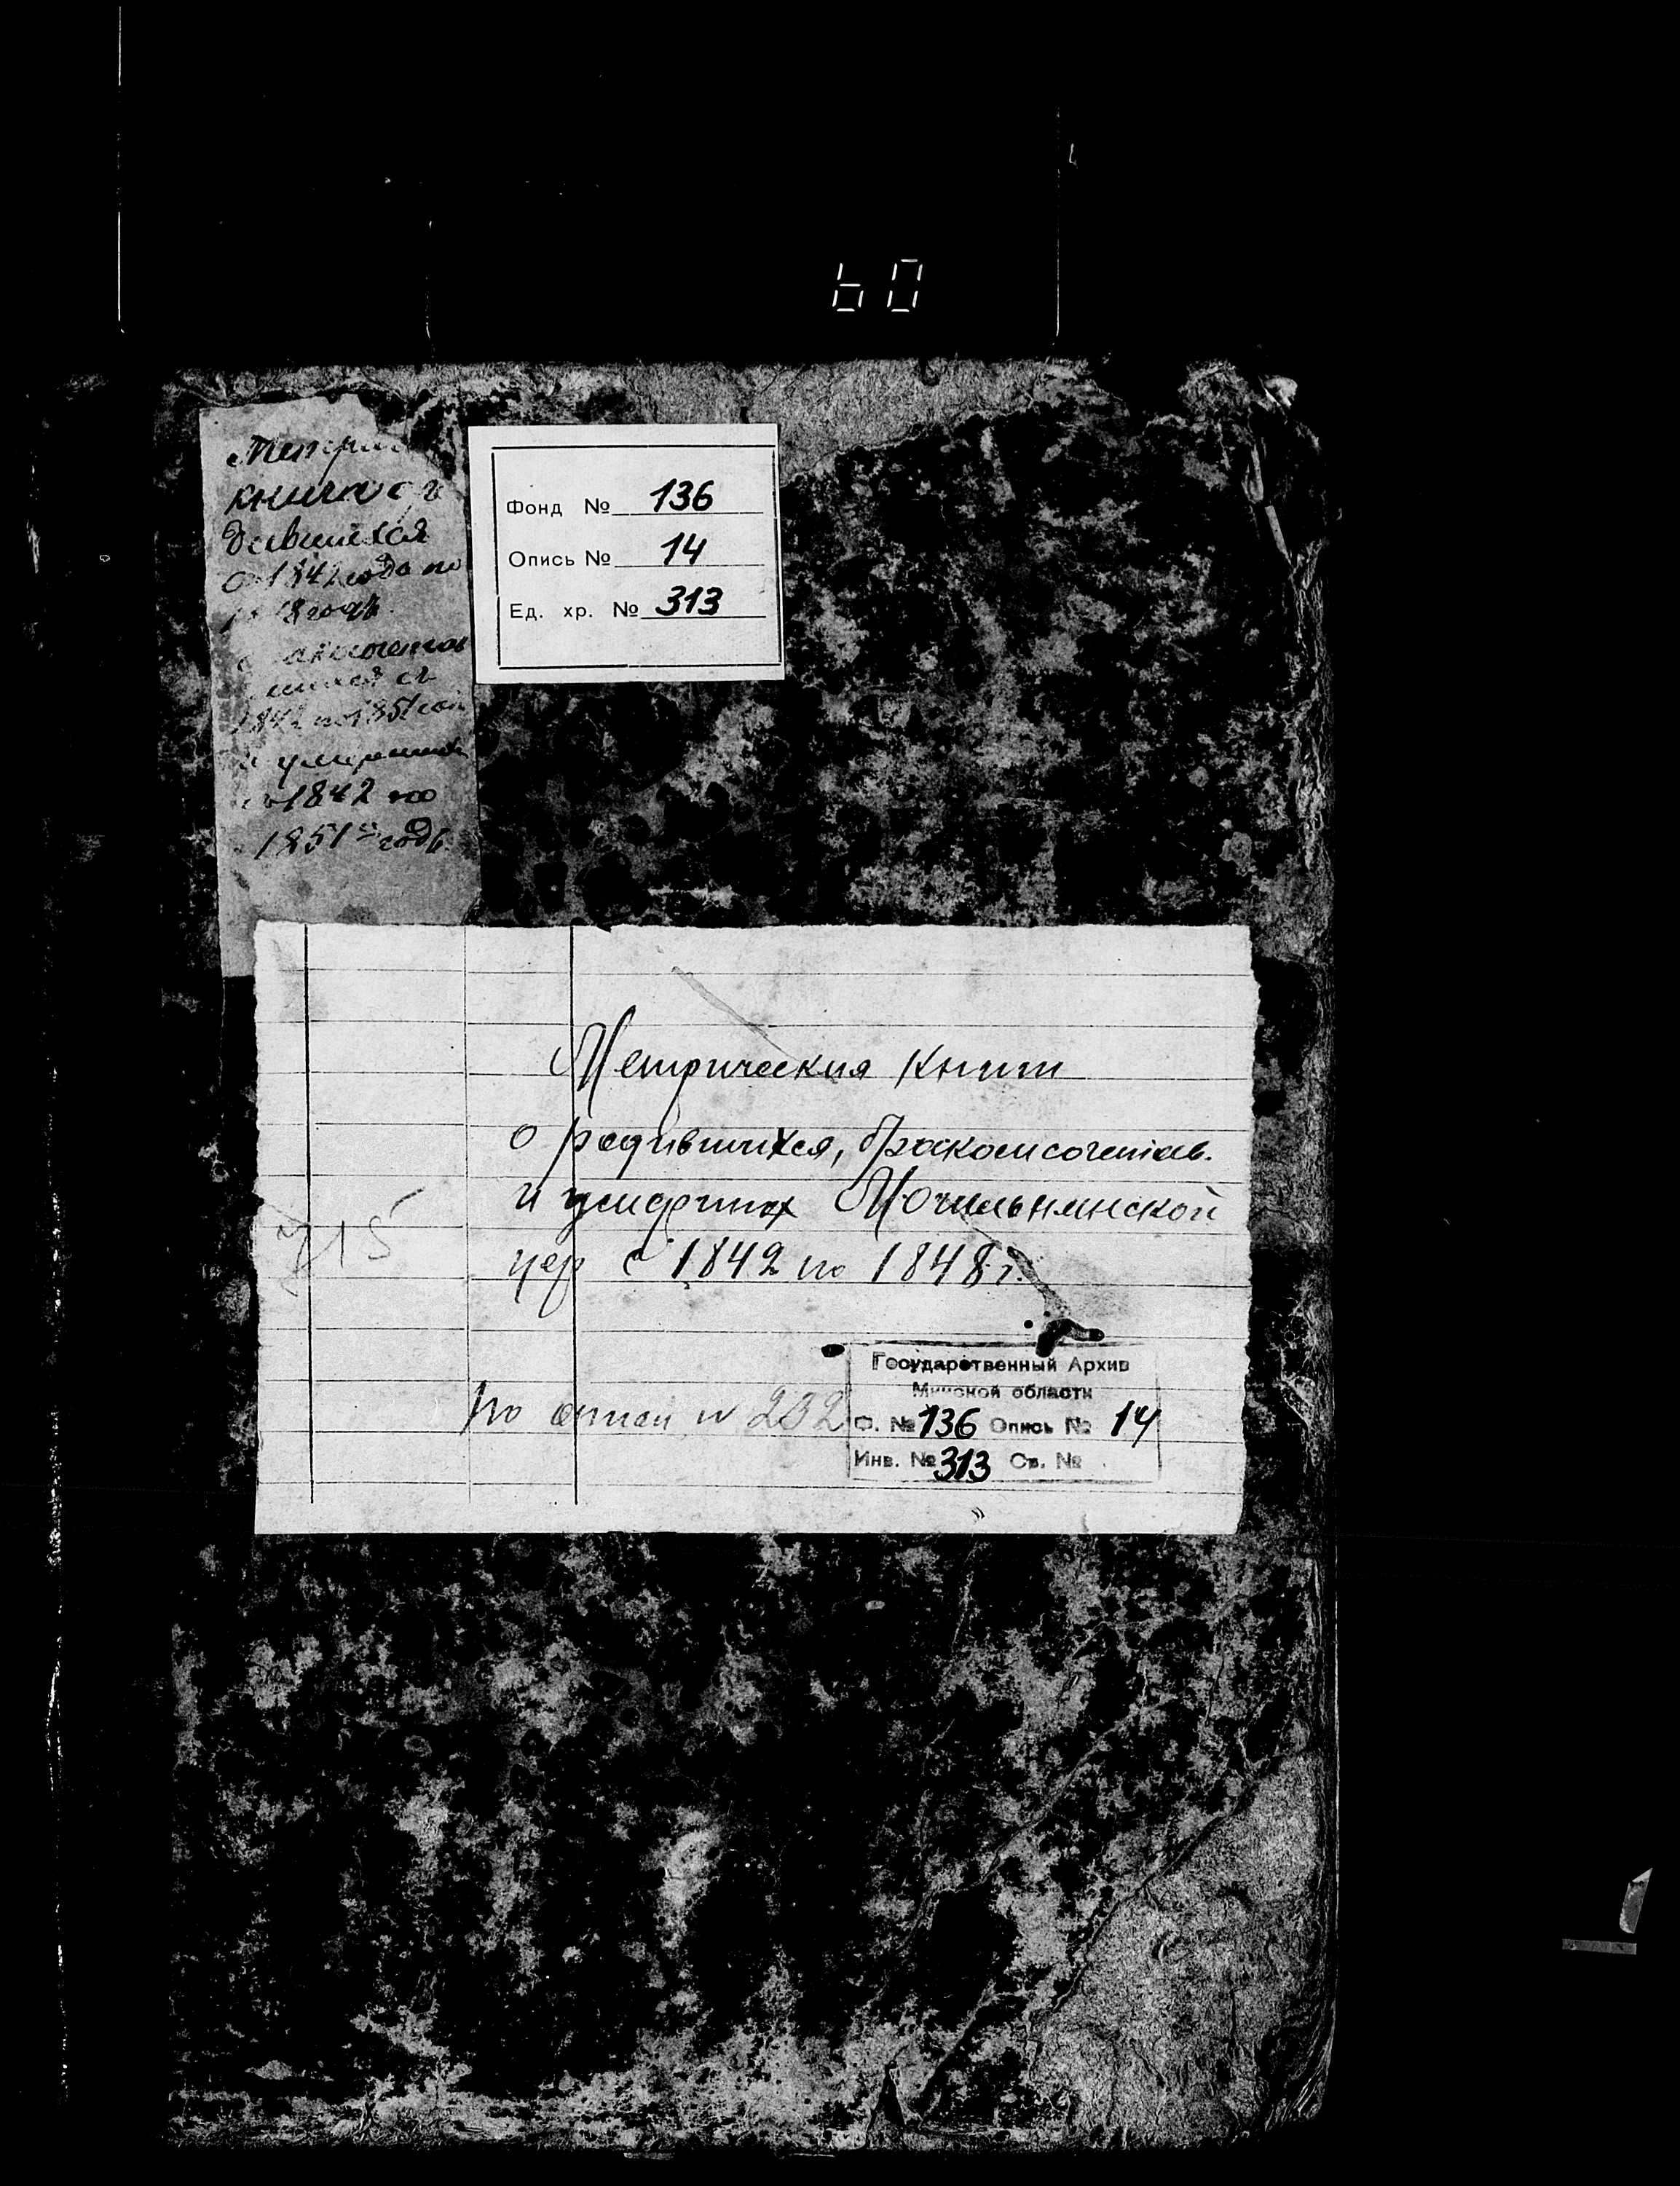 60
книга о
дившихся
1842 года по
умерших
1842 по
1851 годъ
Фонд № 136
Опись № 14
Ед. хр. № 313
Метрическия книги
о родившихся, бракомсочетав.
и умерших Могильнянской
цер с 1842 по 1848 г.
715
по описи № 232
Государственный Архив
Минской области
Ф. № 136 Опись № 14
Инв. № 313 Св. №